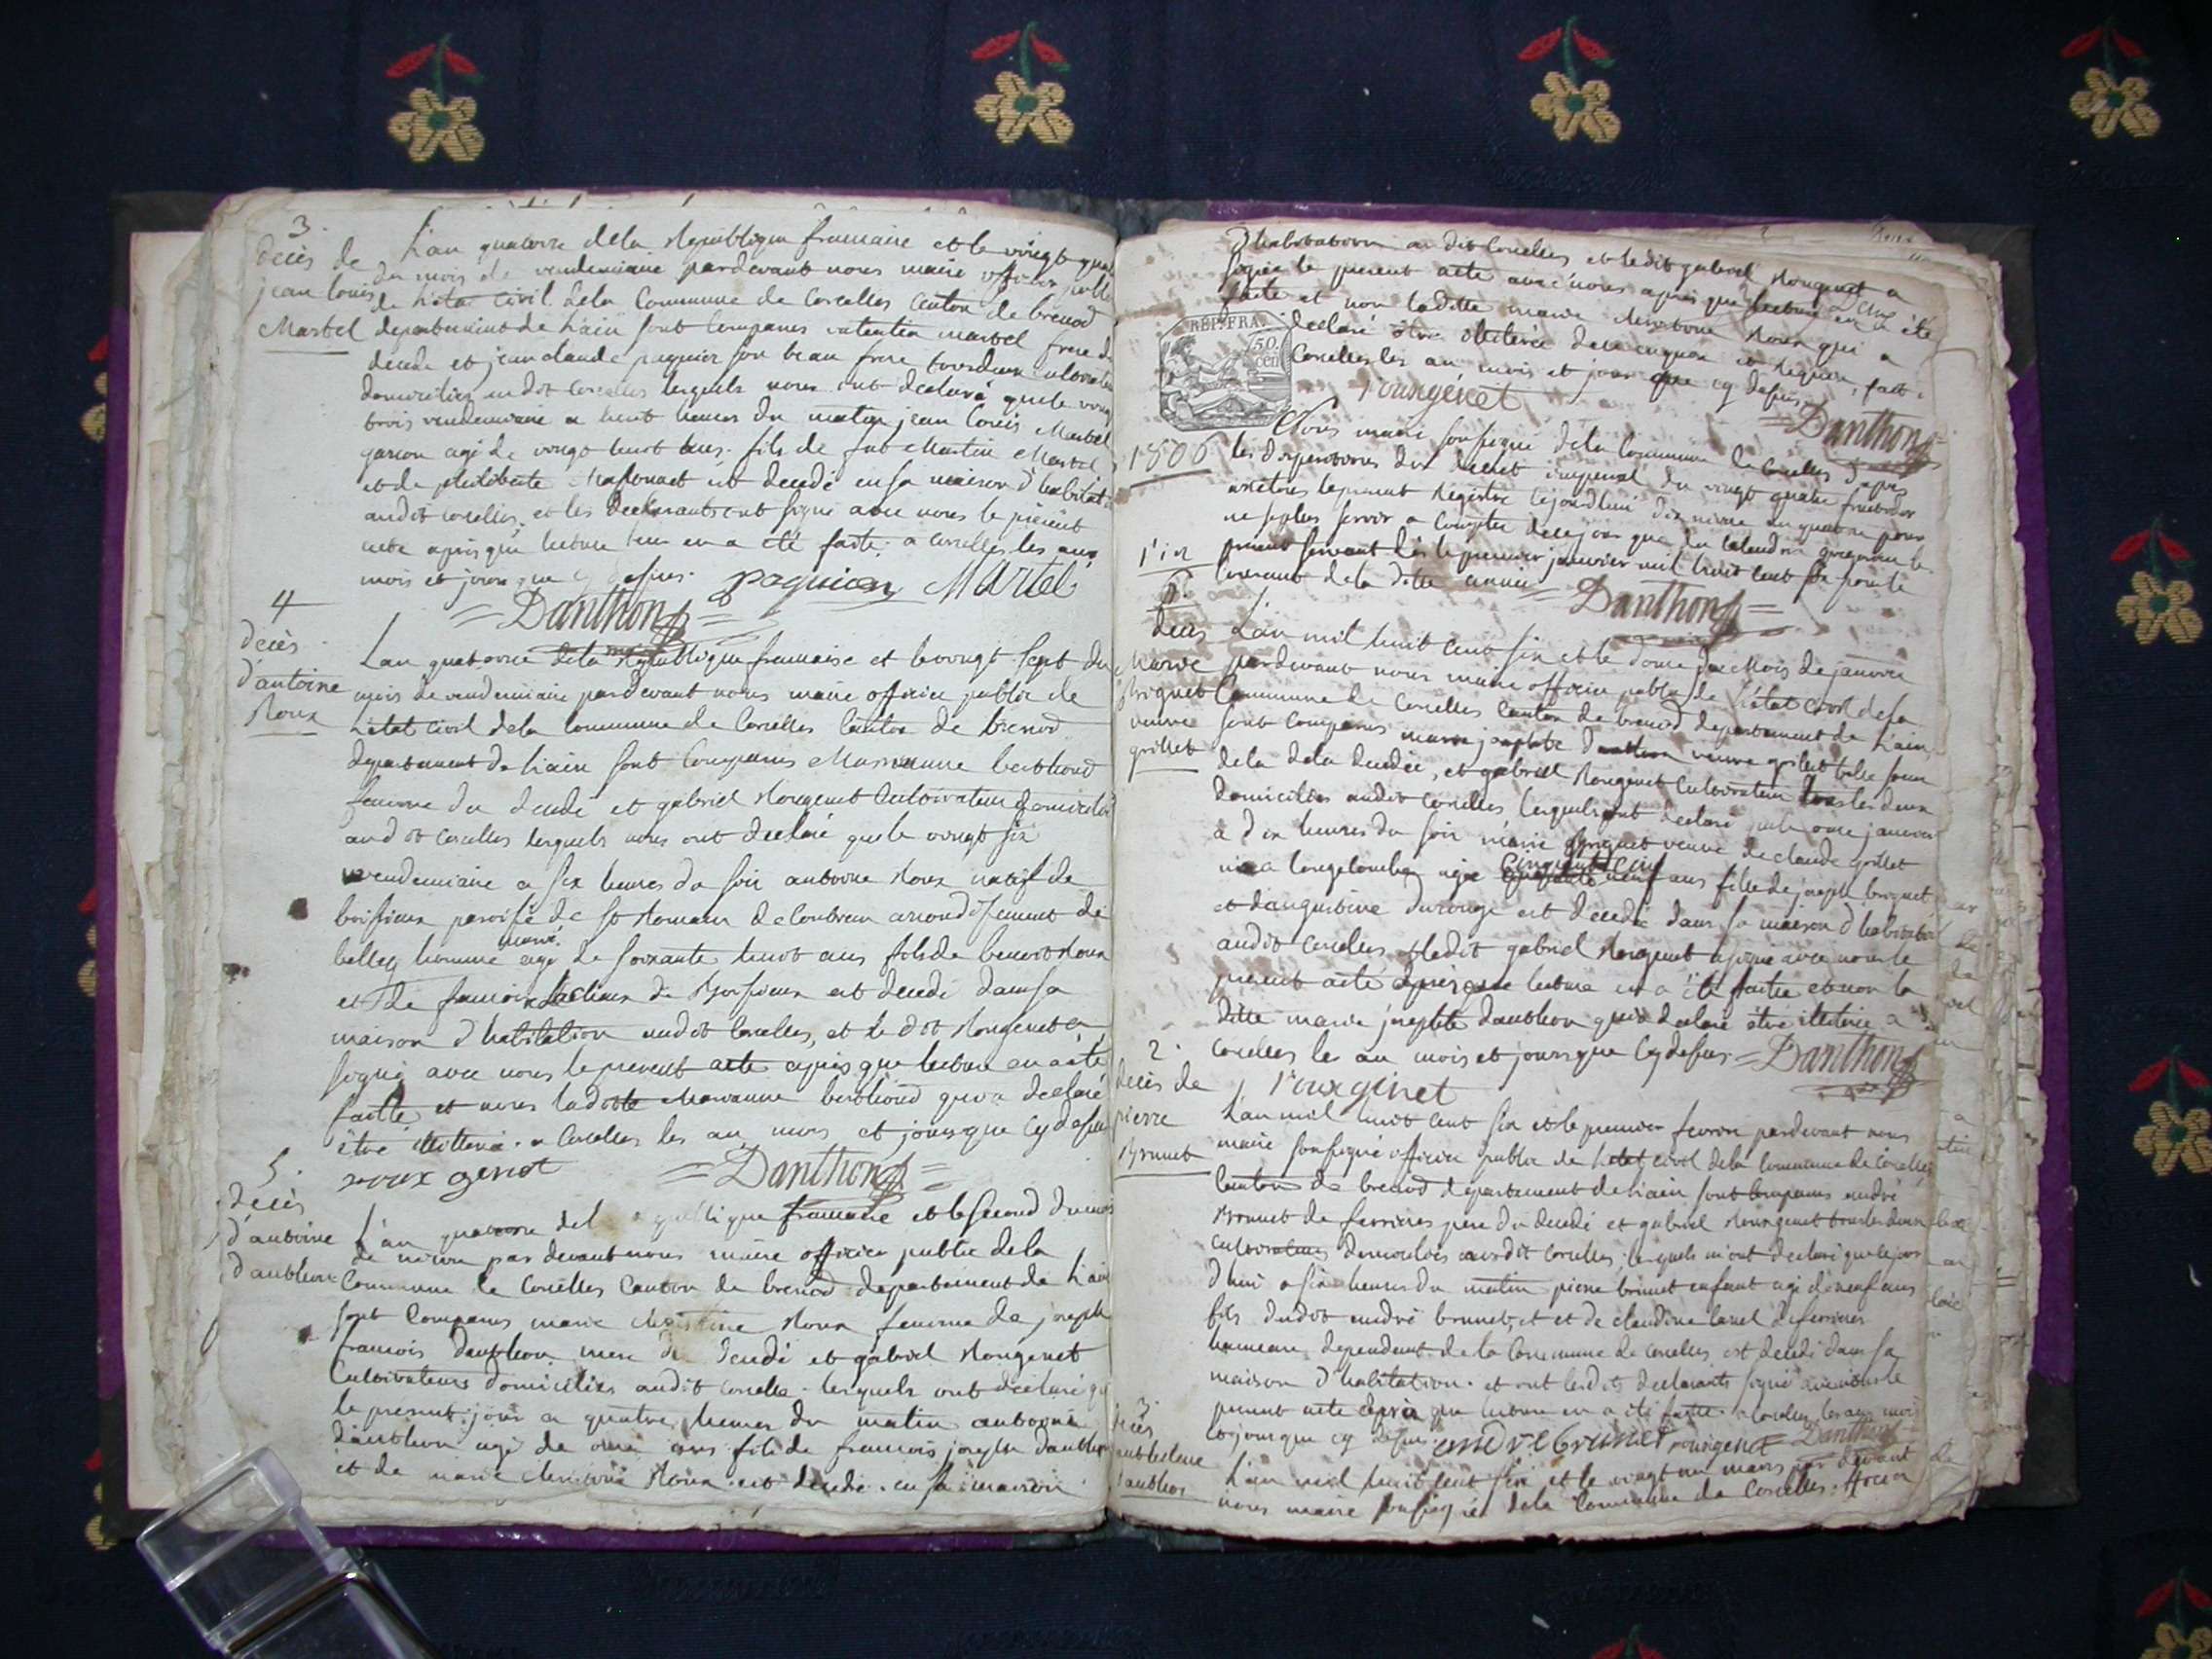 3.
décès de
jean louis
Martel
L'an quatorze de la République francaise et le vingt quatre
du mois de vendemiaire pardevant nous maire officier public
de l'état civil de la Commune de Corcelles Canton de brenod
departement de L'ain sont Comparus martel frere du
décédé et jean claude paquier son beau frere tous deux
domiciliés audit Corcelles lesquels nous ont declaré que le vingt
trois vendemiaire a huit heures du matin jean louis Martel
garcon agé de vingt huit ans. fils de fut Martin Martel
et de philiberte est decedé en sa maison d'habitation
audit corcelles, et les declarants ont signé avec nous le présent
acte après que lecture leur en a été faite, a Corcelles les ans
mois et jours que cy dessus. paquier Martel
=Danthon=
4
décès
d'antoine
Roux
Lan quatorze de la République francaise et le vingt sept du
mois de vendemiaire pardevant nous maire officier public de
létat civil dela Commune de Corcelles Canton de brenod
departement de l'ain sont Comparus Marianne berthoud
femme du decedé et gabriel Rougenet Cultivateur domiciliés
audit Corcelles lesquels nous ont declaré que le vingt six
vendemiaire a six heures du soir antoine Roux natif de
boissieux paroisse de st Romain arrondissement de
belley homme marié agé de soixante huit ans fils de benoit Roux
et de de est decedé dans sa
maison d'habitation audit Corcelles, et le dit Rougenet a
signé avec nous le present acte après que lecture en a été
faitte et nons ladite Marianne berthoud qui a declaré
être illitterée. a Corcelles les an mois et jours que cy dessus
roux genet =Danthon=
5.
décès
d'antoine
danthon
L'an quatorze del publique francaise et le second du mois
de nivose par devant nous maire officier public de la
Commune de Corcelles Canton de brenod departement de L'ain
sont Comparus marie christine Roux femme de joseph
francois danthon mere du decedé et gabriel Rougenet
Cultivateurs domiciliés audit Corcelle. lesquels ont declaré que
le present jour a quatre heures du matin antoine
danthon agé de onze ans fils de francois joseph danthon
et de marie christine Roux est decedé. en sa maison
d'habitation audit Corcelles et ledit gabriel Rougenet a
signé le present acte avec nous après que lecture en a été
faite et non ladite marie christine Roux qui a
declaré être illiterée de ce enquise et requise, fait a
Corcelles les an, mois et jour que cy dessus.
REP. FRA.
50.
cen
rougenet =Danthon=
1806
Nous maire soussigné de la Commune de Corcelles d'apres
les dispositions du decret imperial du vingt quatre fructidor
arretons le present Registre cejourd'hui dix nivose an quatorze pour
ne plus servir a Compter de ce jour que du calendrier gregorien le
present servant dès le premier janvier mil huit cent six pour le
Courant de la dite année =Danthon=
décès
Marie
Briguet
veuve
grillet
L'an mil huit cent six et le douze du Mois de janvier
pardevant nous maire officier public de l'état civil de la
Commune de Corcelles Canton de brenod departement de L'ain
sont Comparus marie josephte danthon veuve grillet belle soeur
de la dela decedée, et gabriel Rougenet Cultivateur tous les deux
domiciliés audit corcelles, lesquels ont declaré que le onze janvier
a dix heures du soir marie Briguet veuve de claude grillet
née a longecombe agée cinquante cinq ans fille de joseph briguet
et danguestine est decedée dans sa maison d'habitation
audit Corcelles, et ledit gabriel Rougenet a signé avec nous le
present acte après que lecture en a été faitte et non la
ditte marie josephte danthon qui a declaré être illiterée a
Corcelles les an mois et jours que cy dessus =Danthon
rougenet
2.
décès de
pierre
Brunet
L'an mil huit cent six et le premier fevrier pardevant nous
maire soussigné officier public de l'etat civil dela Commune de Corcelles
Canton de brenod departement de L'ain sont Comparus andré
Brunet de ferrieres pere du decedé et gabriel Rougenet tous les deux
cultivateurs domiciliés audit Corcelles, lesquels m'ont declaré que le jour
d'hui a six heures du matin pierre brunet enfant agé de neuf ans
fils dudit andré brunet, et et de claudine de ferrieres
hameau dependent de la Commune de Corcelles est decedé dans sa
maison d'habitation. et ont lesdits declarants signé avec nous le
present acte après que lecture en a été faitte a Corcelles les an mois
et jour que cy dessus. andre brunet rougenet =Danthon
3.
décès
danthon
L'an mil huit cent six et le vingt un mars par devant
nous maire soussigné dela Commune de Corcelles officier